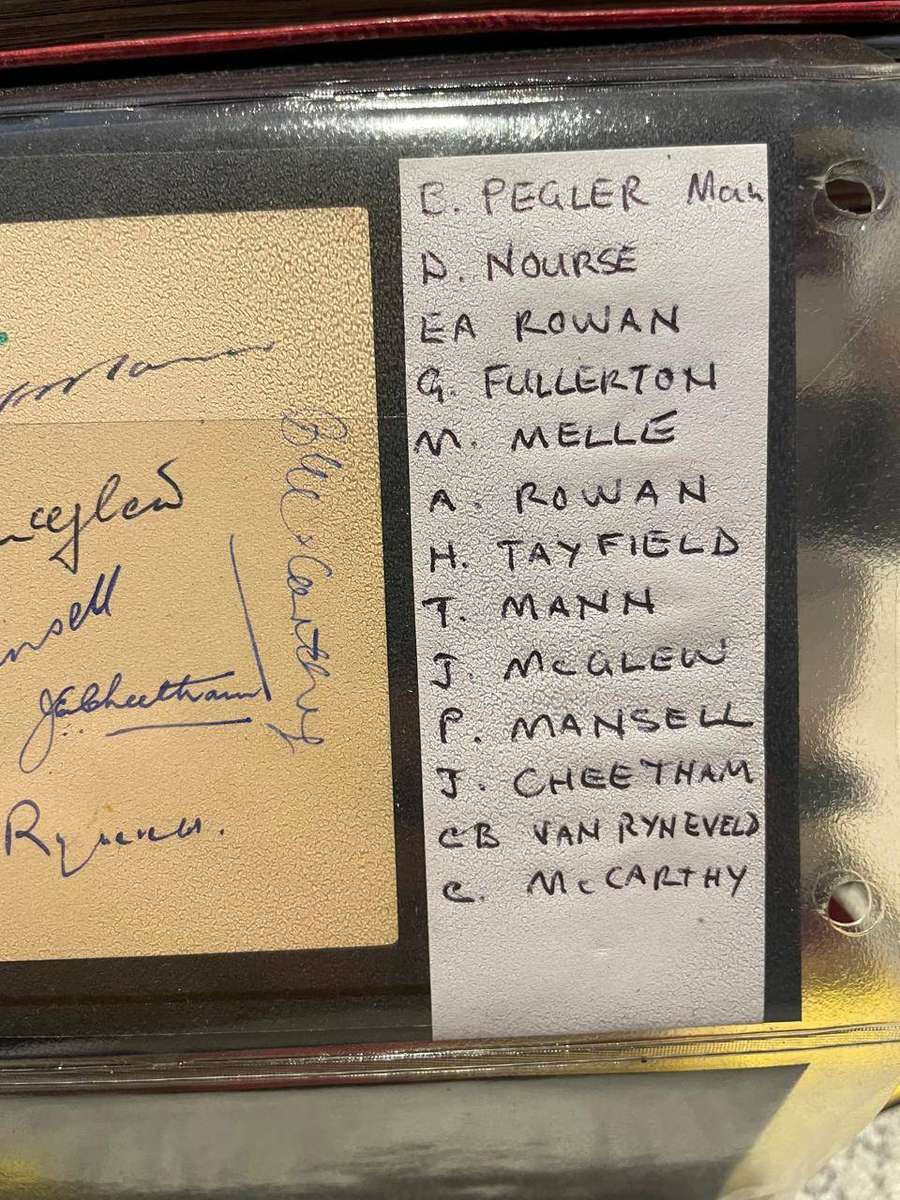 Mann
McGlew
nsell
JECheetham
Ryneveld.
McCarthy
E. PEGLER Man
D. NOURSE
EA ROWAN
G. FULLERTON
M. MELLE
A. ROWAN
H. TAYFIELD
T. MANN
J. McGLEW
P. MANSELL
J. CHEETHAM
CB VAN RYNEVELD
C. McCARTHY